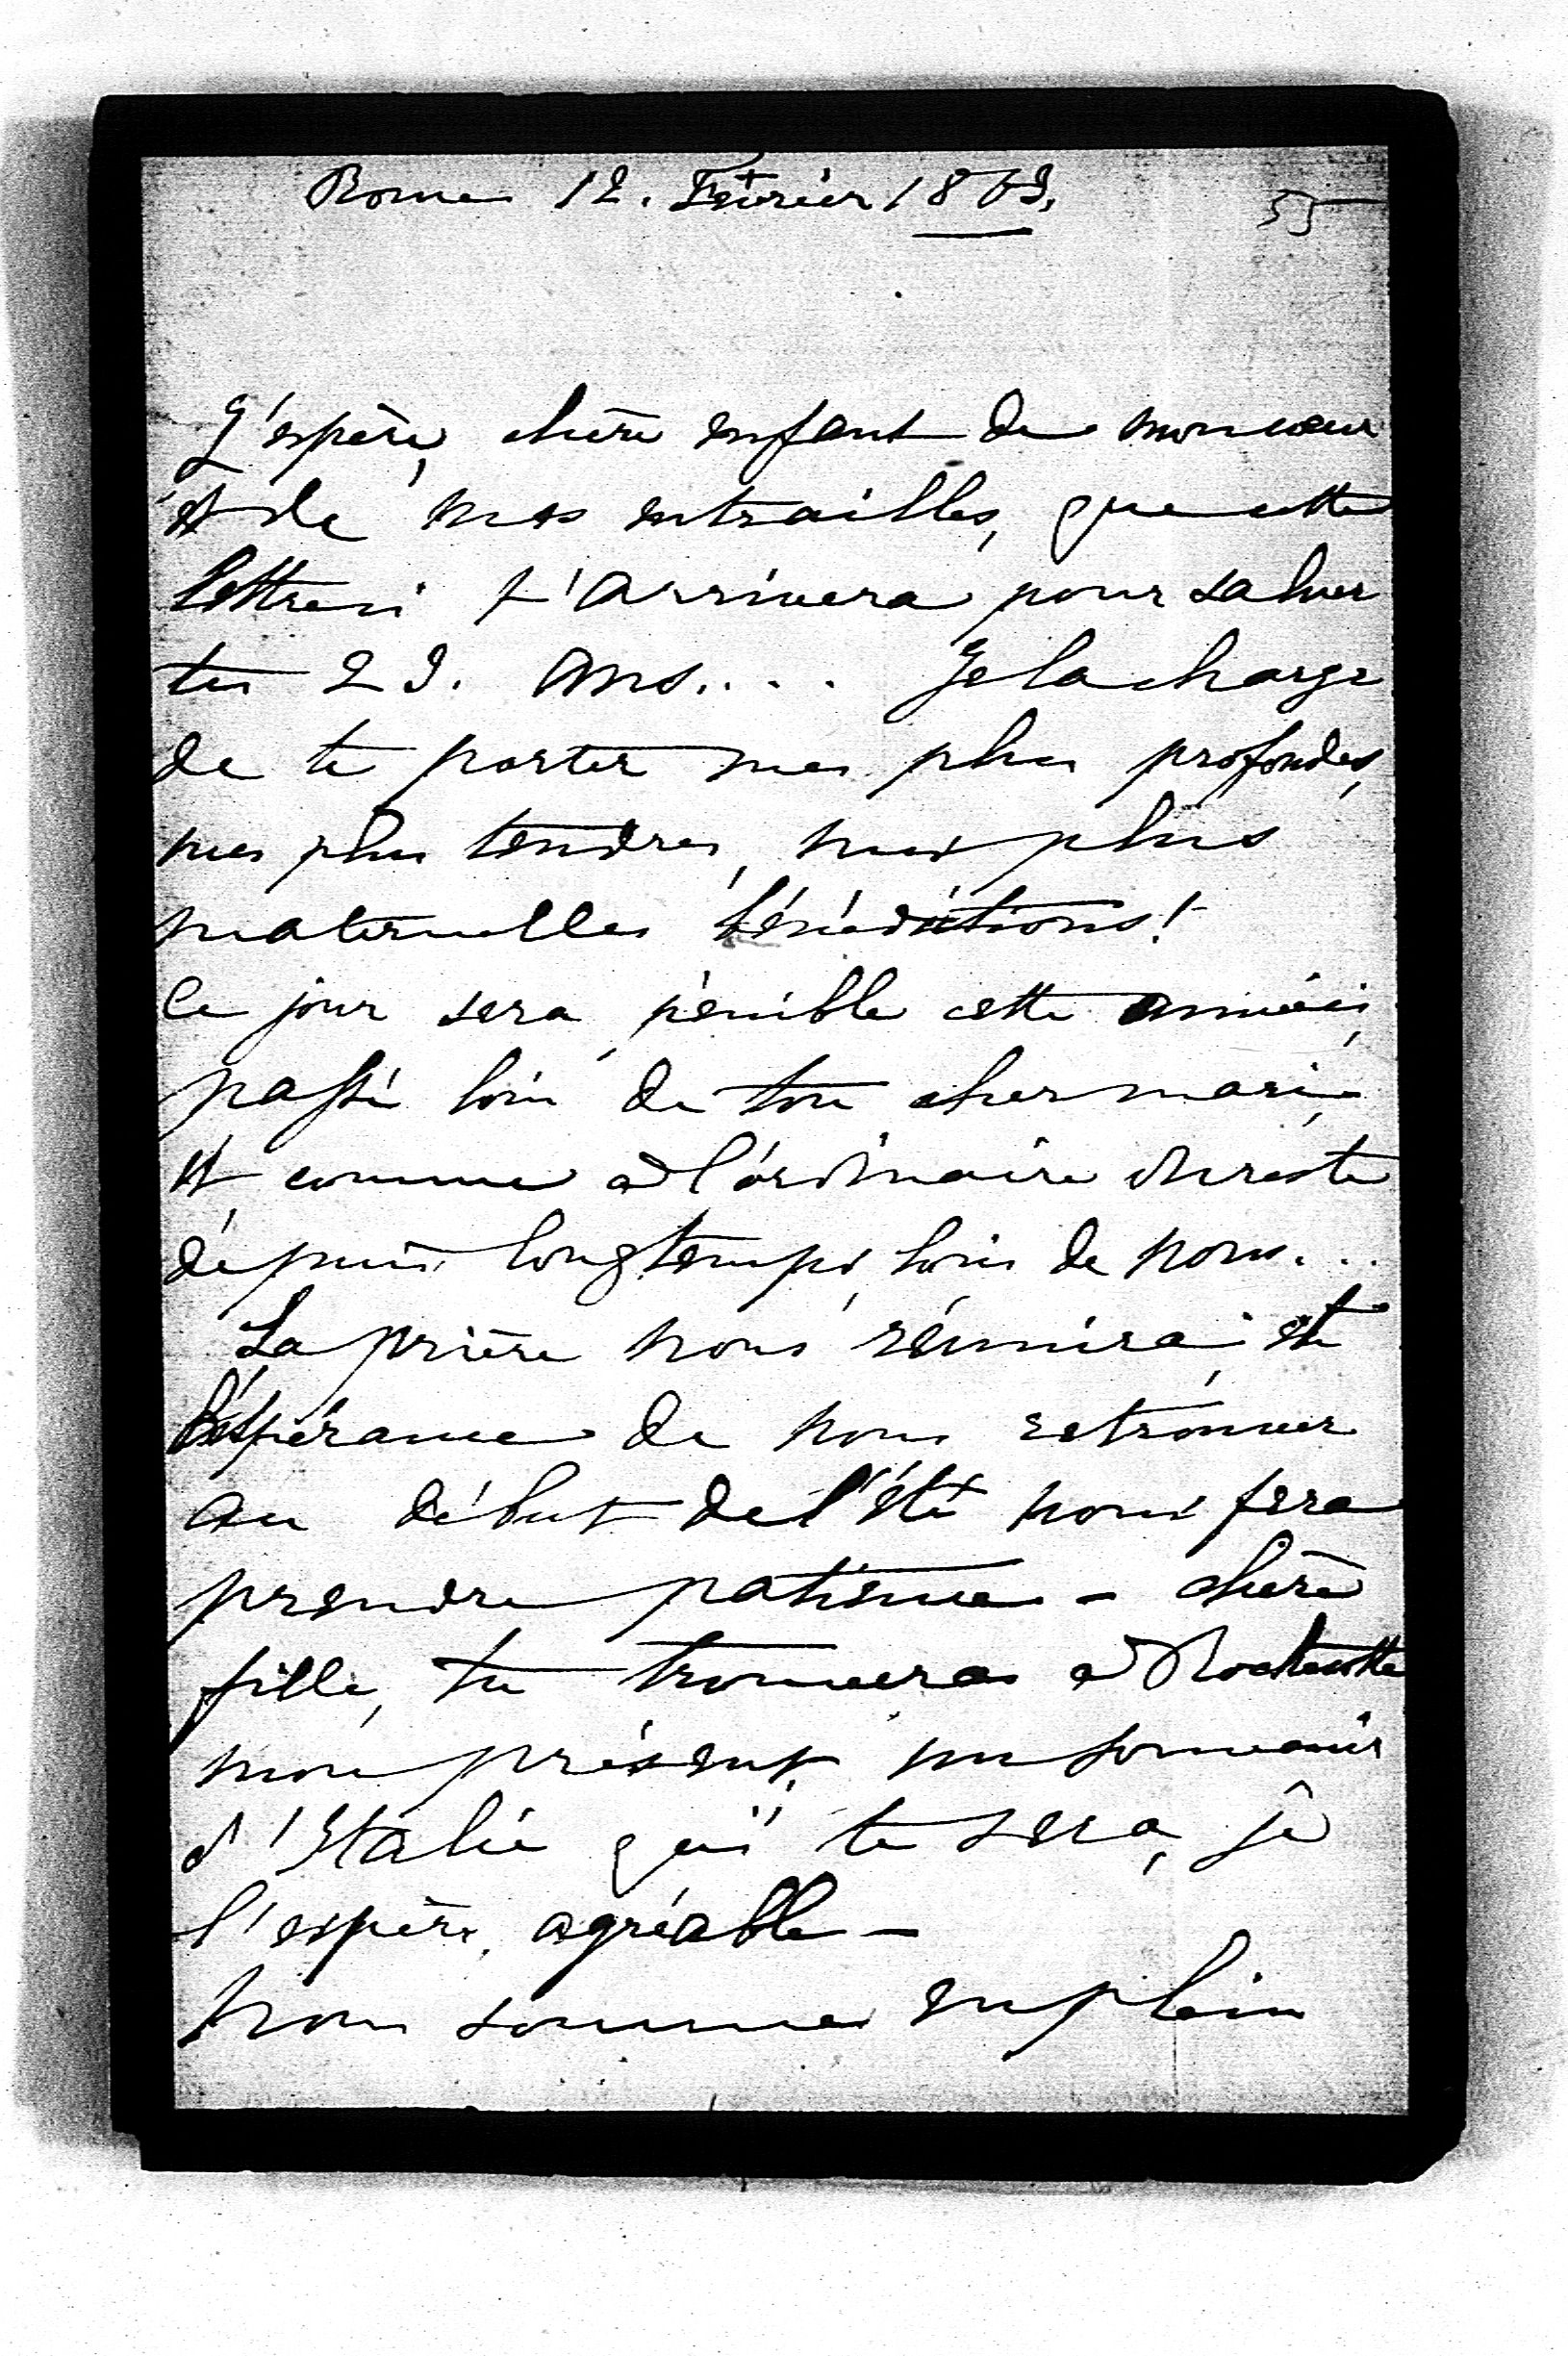 Rome 12. Février 1863.
55
J'espère, chère enfant de mon cœur
et de mes entrailles, que cette
lettre ci t'arrivera pour saluer
tes 23. ans.... Je la charge
de te porter mes plus profondes,
mes plus tendres, mes plus
maternelles bénédictions!
Ce jour sera, pénible cette année,
passé loin de ton cher mari,
et comme à l'ordinaire du reste
depuis longtemps, loin de nous...
La prière nous réunira, et
l'espérance de nous retrouver
au début de l'été nous fera
prendre patience - chère
fille, tu trouveras à Rochecotte
mon présent, un souvenir
d'Italie qui te sera, je
l'espère, agréable -
Nous sommes en plein